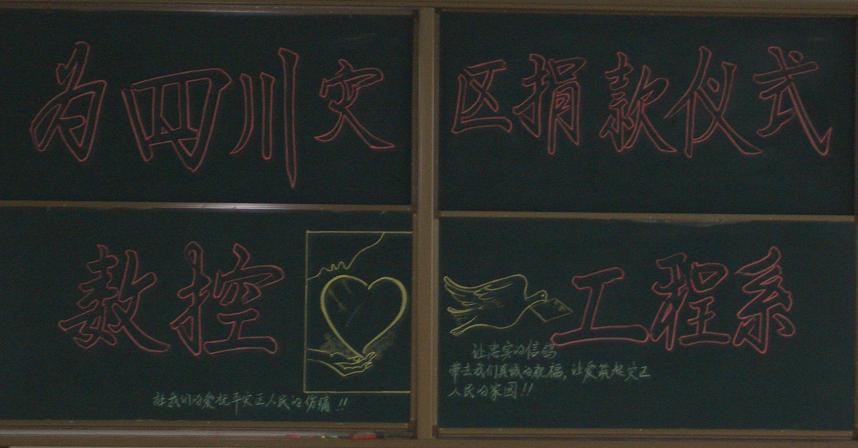 为四川灾区捐款仪式
数控工程系
让我们的爱抚平灾区人民的伤痛!!
让忠实的信鸽
带去我们真诚的祝福,让爱筑起灾区
人民的家园!!